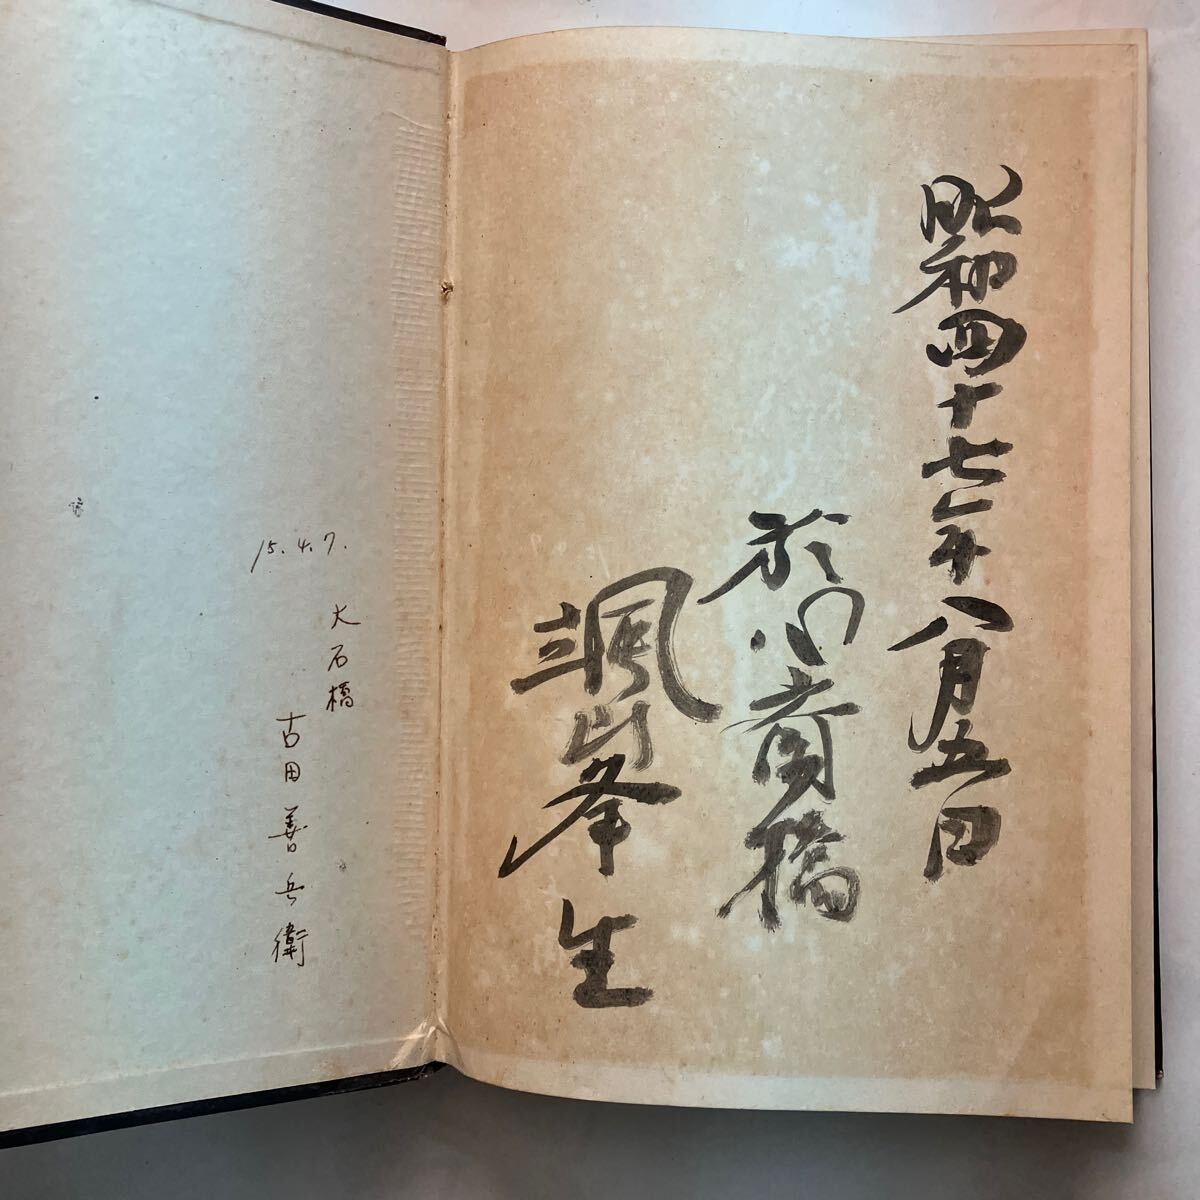 昭和四十七年八月五日
於
橋
颯峯生
15.4.7.
大石橋
古田善兵衛